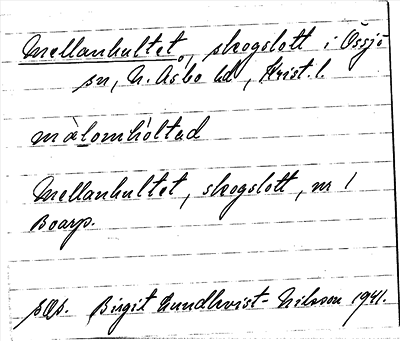 Mellanhultet, skogslott i Össjö
sn, N. Åsbo hd, Krist. l.
màlomhòltad
Mellanhultet, skogslott, nr 1
Boarp.
Birgit Lundkvist-Nilsson 1941.